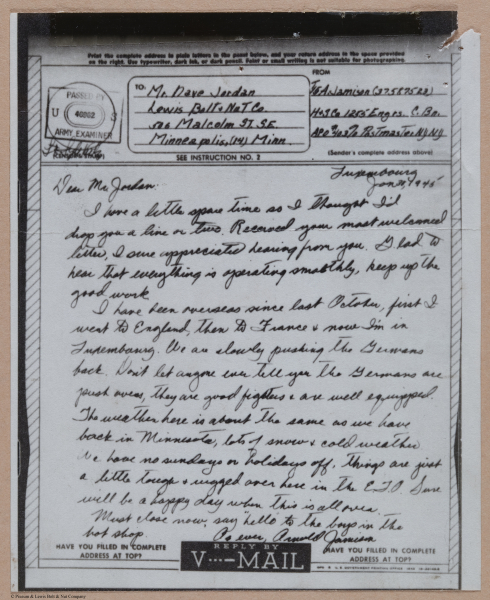 Print the complete address in plain letters in the panel below, and your return address in the space provided
on the right. Use typewriter, dark ink, or dark pencil. Faint or small writing is not suitable for photographing.
PASSED BY
U S
40002
ARMY EXAMINER
(CENSOR'S STAMP)
TO:
Mr. Dave Jordan
Lewis Bolt & Nut Co.
Malcolm St. S.E.
Minneapolis, (14) Minn.
SEE INSTRUCTION NO. 2
FROM
Jamison
H+S Co. 1255 Engrs. C. Bn.
APO Postmaster, N.Y., N.Y.
(Sender's complete address above)
Luxembourg
Jan 1945
Dear Mr. Jordan:
I have a little spare time so I thought I'd
drop you a line or two. Received your most welcomed
letter, I sure appreciated hearing from you. Glad to
hear that everything is operating smoothly, keep up the
good work
I have been overseas since last October, first I
went to England, then to France & now I'm in
Luxembourg. We are slowly pushing the Germans
back. Don't let anyone ever tell you the Germans are
push overs, they are good fighters & are well equipped.
The weather here is about the same as we have
back in Minnesota, lots of snow & cold weather
We have no sundays or holidays off, things are just
a little tough & rugged over here in the E.T.O. Sure
will be a happy day when this is all over.
Must close now, say "hello" to the boys in the
bot shop.
As ever, Arnold Jamison
HAVE YOU FILLED IN COMPLETE
ADDRESS AT TOP?
REPLY BY
V···–MAIL
HAVE YOU FILLED IN COMPLETE
ADDRESS AT TOP?
U.S. GOVERNMENT PRINTING OFFICE
© Nucor & Lewis Bolt & Nut Company